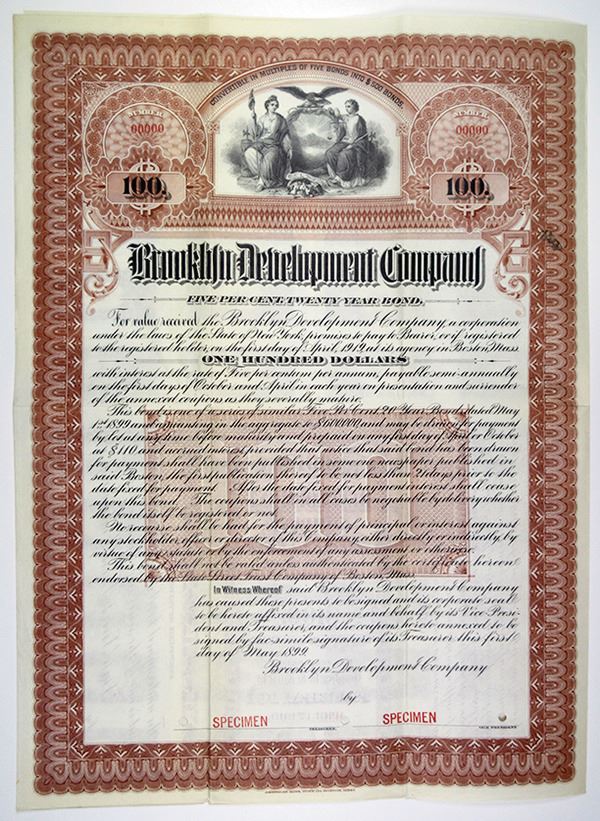 CONVERTIBLE IN MULTIPLES OF FIVE BONDS INTO $500 BONDS.
NUMBER
00000
NUMBER
00000
100.
100.
Brooklyn Development Company
FIVE PER CENT. TWENTY YEAR BOND.
For value received the Brooklyn Development Company, a corporation
under the laws of the State of New York promises to pay to Bearer, or if registered
to the registered holder, on the first day of April 1919, at its agency in Boston, Mass.
ONE HUNDRED DOLLARS
with interest at the rate of Five per centum per annum, payable semi-annually
on the first days of October and April in each year on presentation and surrender
of the annexed coupons as they severally mature.
This bond is one of a series of similar Five Per Cent. 20 Year Bonds dated May
1st 1899 and amounting in the aggregate to $600000, and may be drawn for payment
by lot at any time before maturity and prepaid on any first day of April or October
at $110. and accrued interest provided that notice that said bond has been drawn
for payment shall have been published in some newspaper published in
said Boston, the first publication thereof to be not less than 20 days before to the
date fixed for payment. After the date fixed for payment interest shall cease
upon this bond. The coupons shall in all cases be negotiable by delivery whether
the bond itself be registered or not.
No recourse shall be had for the payment of principal or interest against
any stockholder, officer or director of this Company either directly or indirectly, by
virtue of any statute by the enforcement of any assessment or otherwise.
This bond shall not be valid unless authenticated by the certificate hereon
endorsed by the Trust Company of Boston, Mass.
In Witness Whereof said Brooklyn Development Company
has caused these presents to be signed and its corporate seal
to be hereto affixed in its name and behalf by its Vice-Presi-
dent and Treasurer, and the coupons hereto annexed to be
signed by fac-simile signature of its Treasurer this first
day of May 1899.
Brooklyn Development Company
by
SPECIMEN
SPECIMEN
TREASURER.
VICE PRESIDENT
AMERICAN BANK NOTE CO.